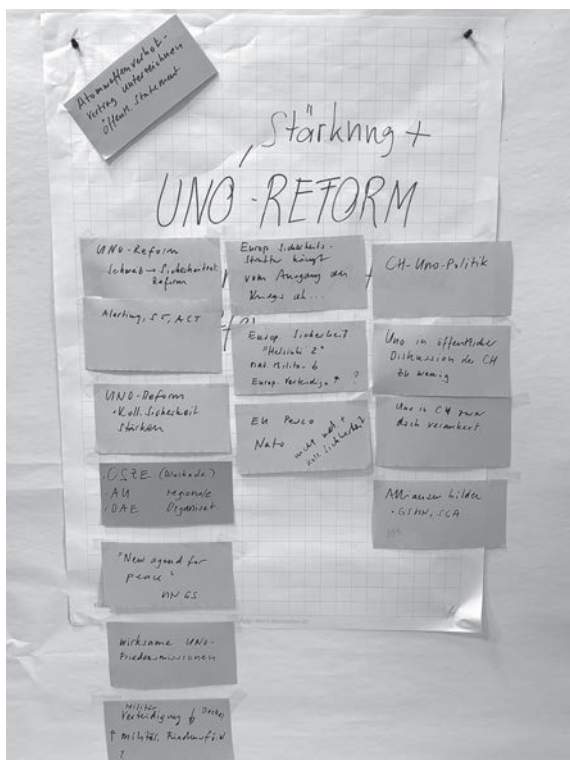 Atomwaffenverbot-
vertrag unterzeichnen
öffentl. Statement
, Stärkung +
UNO-REFORM
UNO-Reform
Schweiz → Sicherheitsrat
Reform
S5, ACT
UNO-Reform
• Koll. Sicherheit
stärken
• OSZE (Blockade)
• AU regionale
• OAE Organisat
"New agend for
peace"
UN GS
wirksame UNO-
Friedensmissionen
Militär
Verteidigung ↓
↑ militär.
?
Europ. Sicherheits-
struktur hängt
vom Ausgang des
Krieges ab...
Europ. Sicherheit
"Helsinki 2"
nat. Militär ↓
Europ. Verteidig. ↑ ?
EU Pesco
Nato
nicht
koll. Sicherheit
CH-Uno-Politik
Uno in öffentlicher
Diskussion der CH
zu wenig
Uno in CH zwar
doch verankert
Allianzen bilden